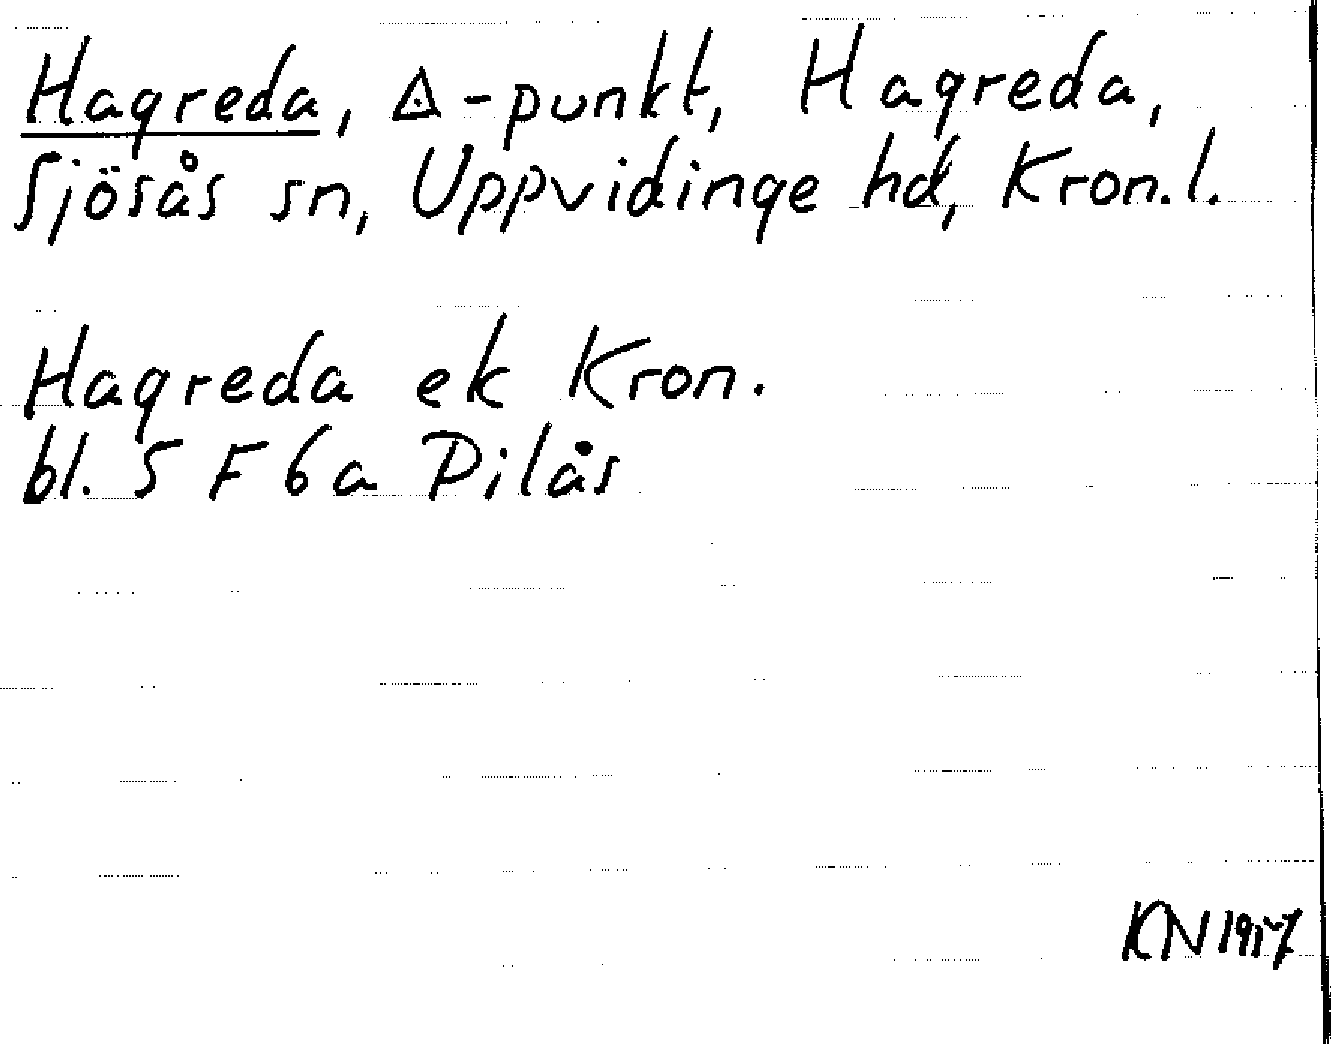 Hagreda, △-punkt, Hagreda,
Sjösås sn, Uppvidinge hd, Kron.l.
Hagreda ek Kron.
bl. 5 F 6 a Dilås
KN 1957